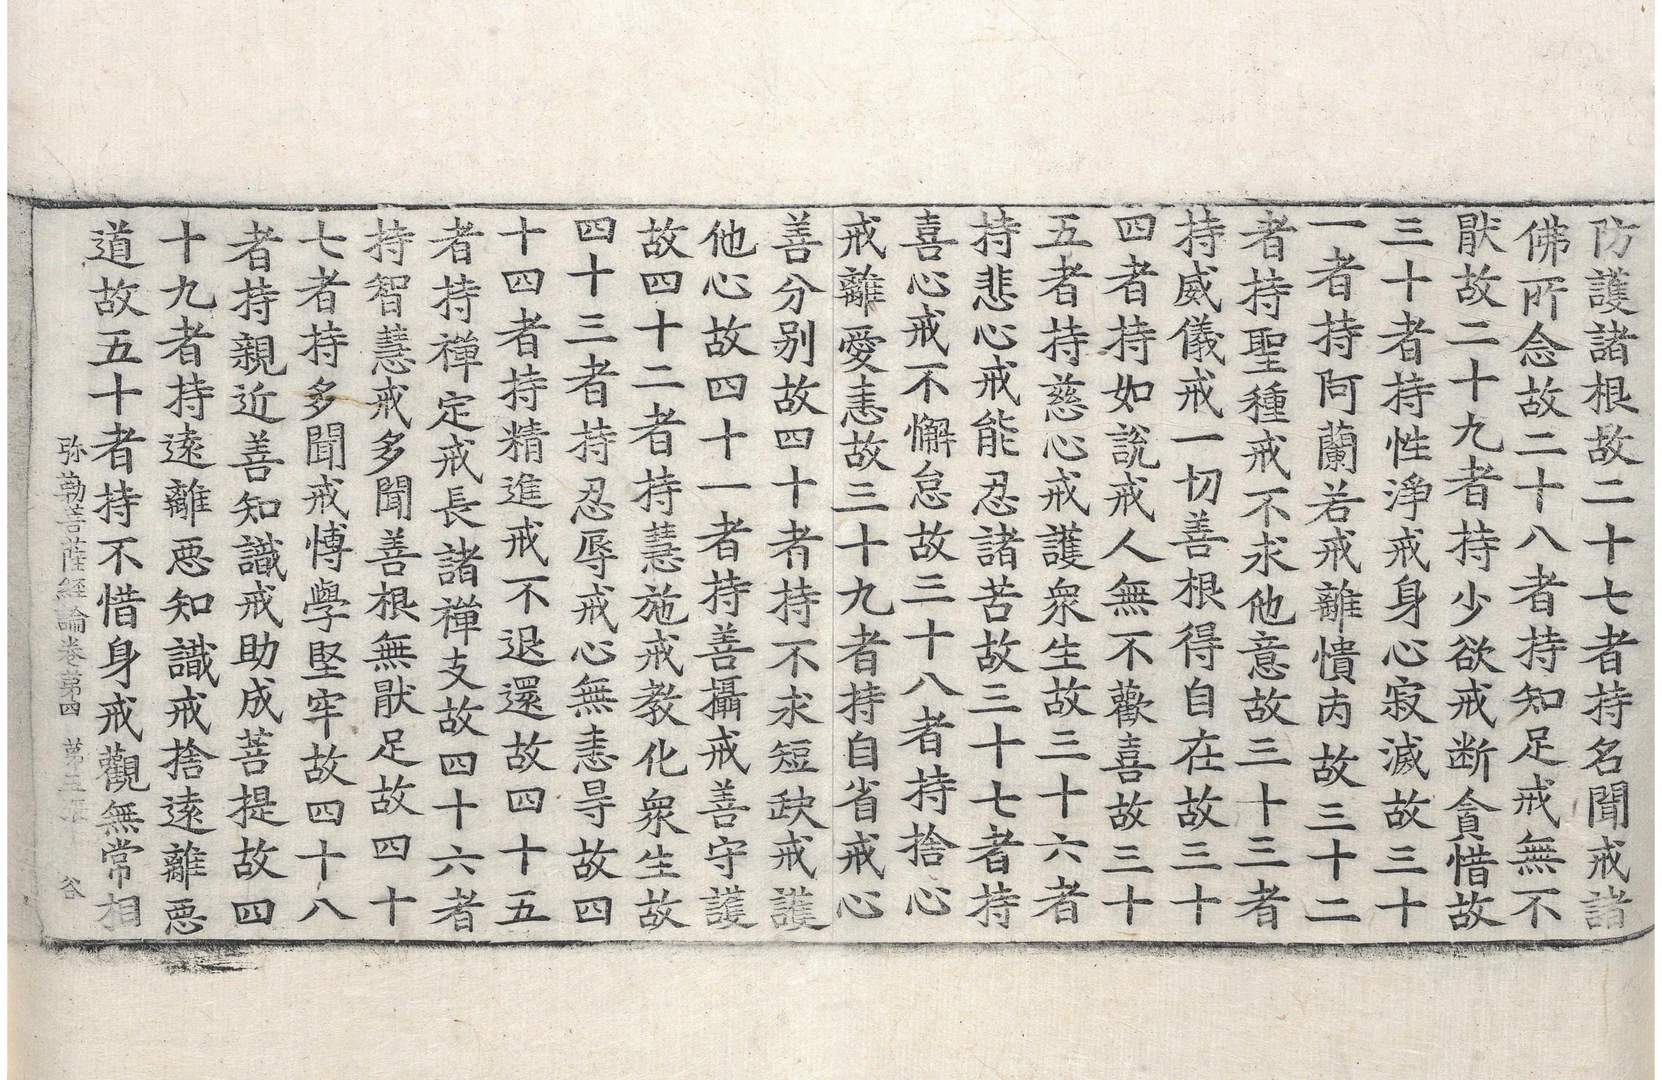 防護諸根故二十七者持名聞戒諸
佛所念故二十八者持知足戒無不
猒故二十九者持少欲戒断貪惜故
三十者持性淨戒身心寂滅故三十
一者持阿蘭若戒離憒丙故三十二
者持聖種戒不求他意故三十三者
持威儀戒一切善根得自在故三十
四者持如說戒人無不歡喜故三十
五者持慈心戒護衆生故三十六者
持悲心戒能忍諸苦故三十七者持
喜心戒不懈怠故三十八者持捨心
戒離愛恚故三十九者持自省戒心
善分别故四十者持不求短缺戒護
他心故四十一者持善攝戒善守護
故四十二者持慧施戒教化衆生故
四十三者持忍辱戒心無恚㝵故四
十四者持精進戒不退還故四十五
者持禪定戒長諸禪支故四十六者
持智慧戒多聞善根無猒足故四十
七者持多聞戒博學堅牢故四十八
者持親近善知識戒助成菩提故四
十九者持遠離惡知識戒捨遠離惡
道故五十者持不惜身戒觀無常相
弥勒菩薩經論卷第四 第五張 谷